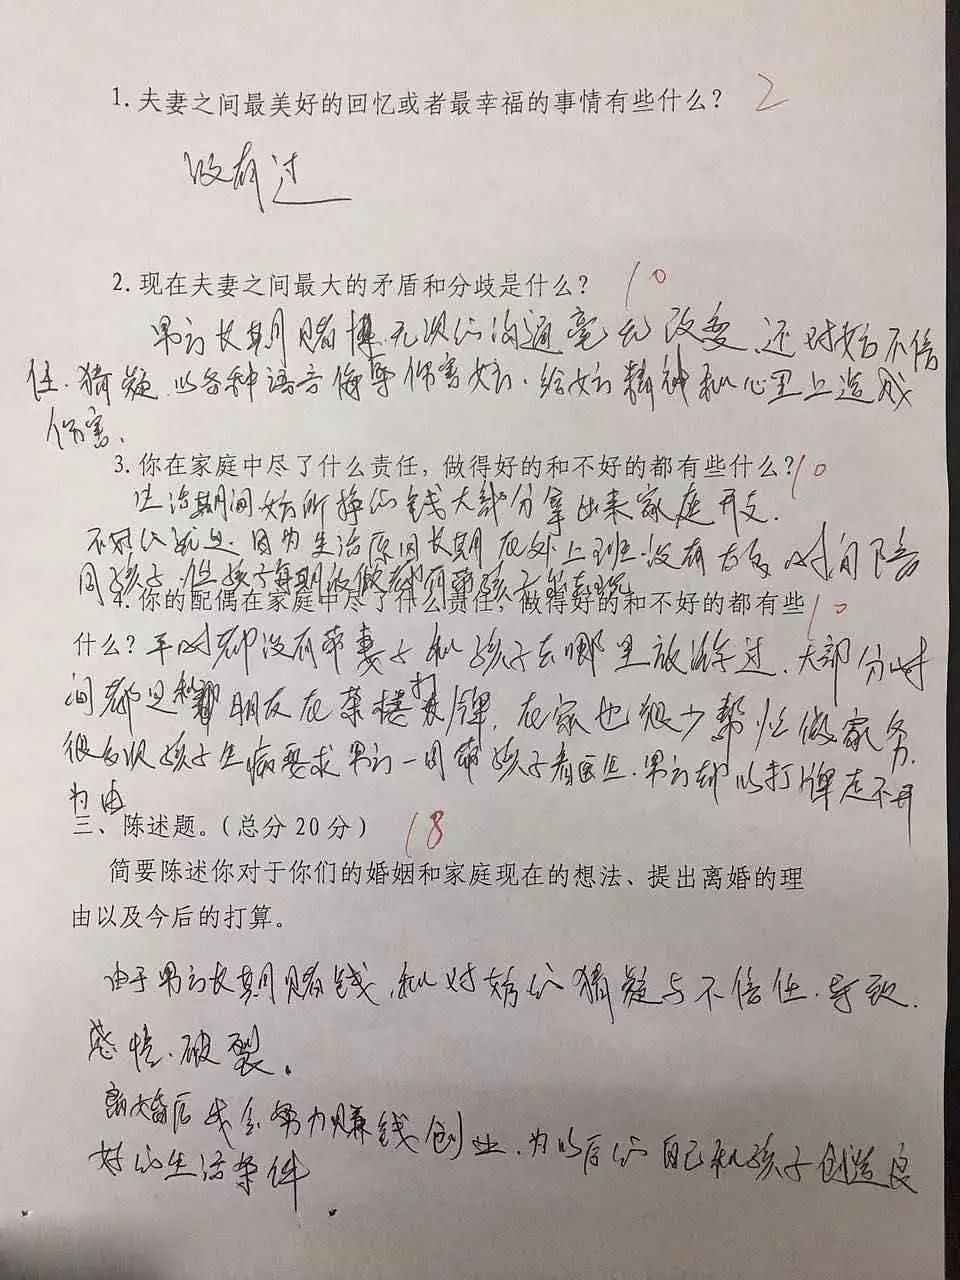 1. 夫妻之间最美好的回忆或者最幸福的事情有些什么？ 2
没有过
2. 现在夫妻之间最大的矛盾和分歧是什么？ 10
男方长期赌博.无次的沟通毫无改变.还对女方不信
任.猜疑.以各种语言侮辱伤害女方.给女方精神和心里上造成
伤害.
3. 你在家庭中尽了什么责任，做得好的和不好的都有些什么？ 10
生活期间女方所挣的钱大部分拿出来家庭开支.
不好的就是.因为生活原因长期在外上班.没有太多时间陪
同孩子.但孩子每期放假都
4. 你的配偶在家庭中尽了什么责任，做得好的和不好的都有些 10
什么？平时都没有带妻子和孩子去哪里放游过.大部分时
间都是和朋友在茶楼打牌.在家也很少帮忙做家务.
很多次孩子生病要求男方一同带孩子看医生.男方却以打牌走不开
为由
三、陈述题。（总分20分） 18
简要陈述你对于你们的婚姻和家庭现在的想法、提出离婚的理
由以及今后的打算。
由于男方长期赌钱.和对女方的猜疑与不信任.导致.
感情.破裂。
离婚后我会努力赚钱创业.为以后的自己和孩子创造良
好的生活条件